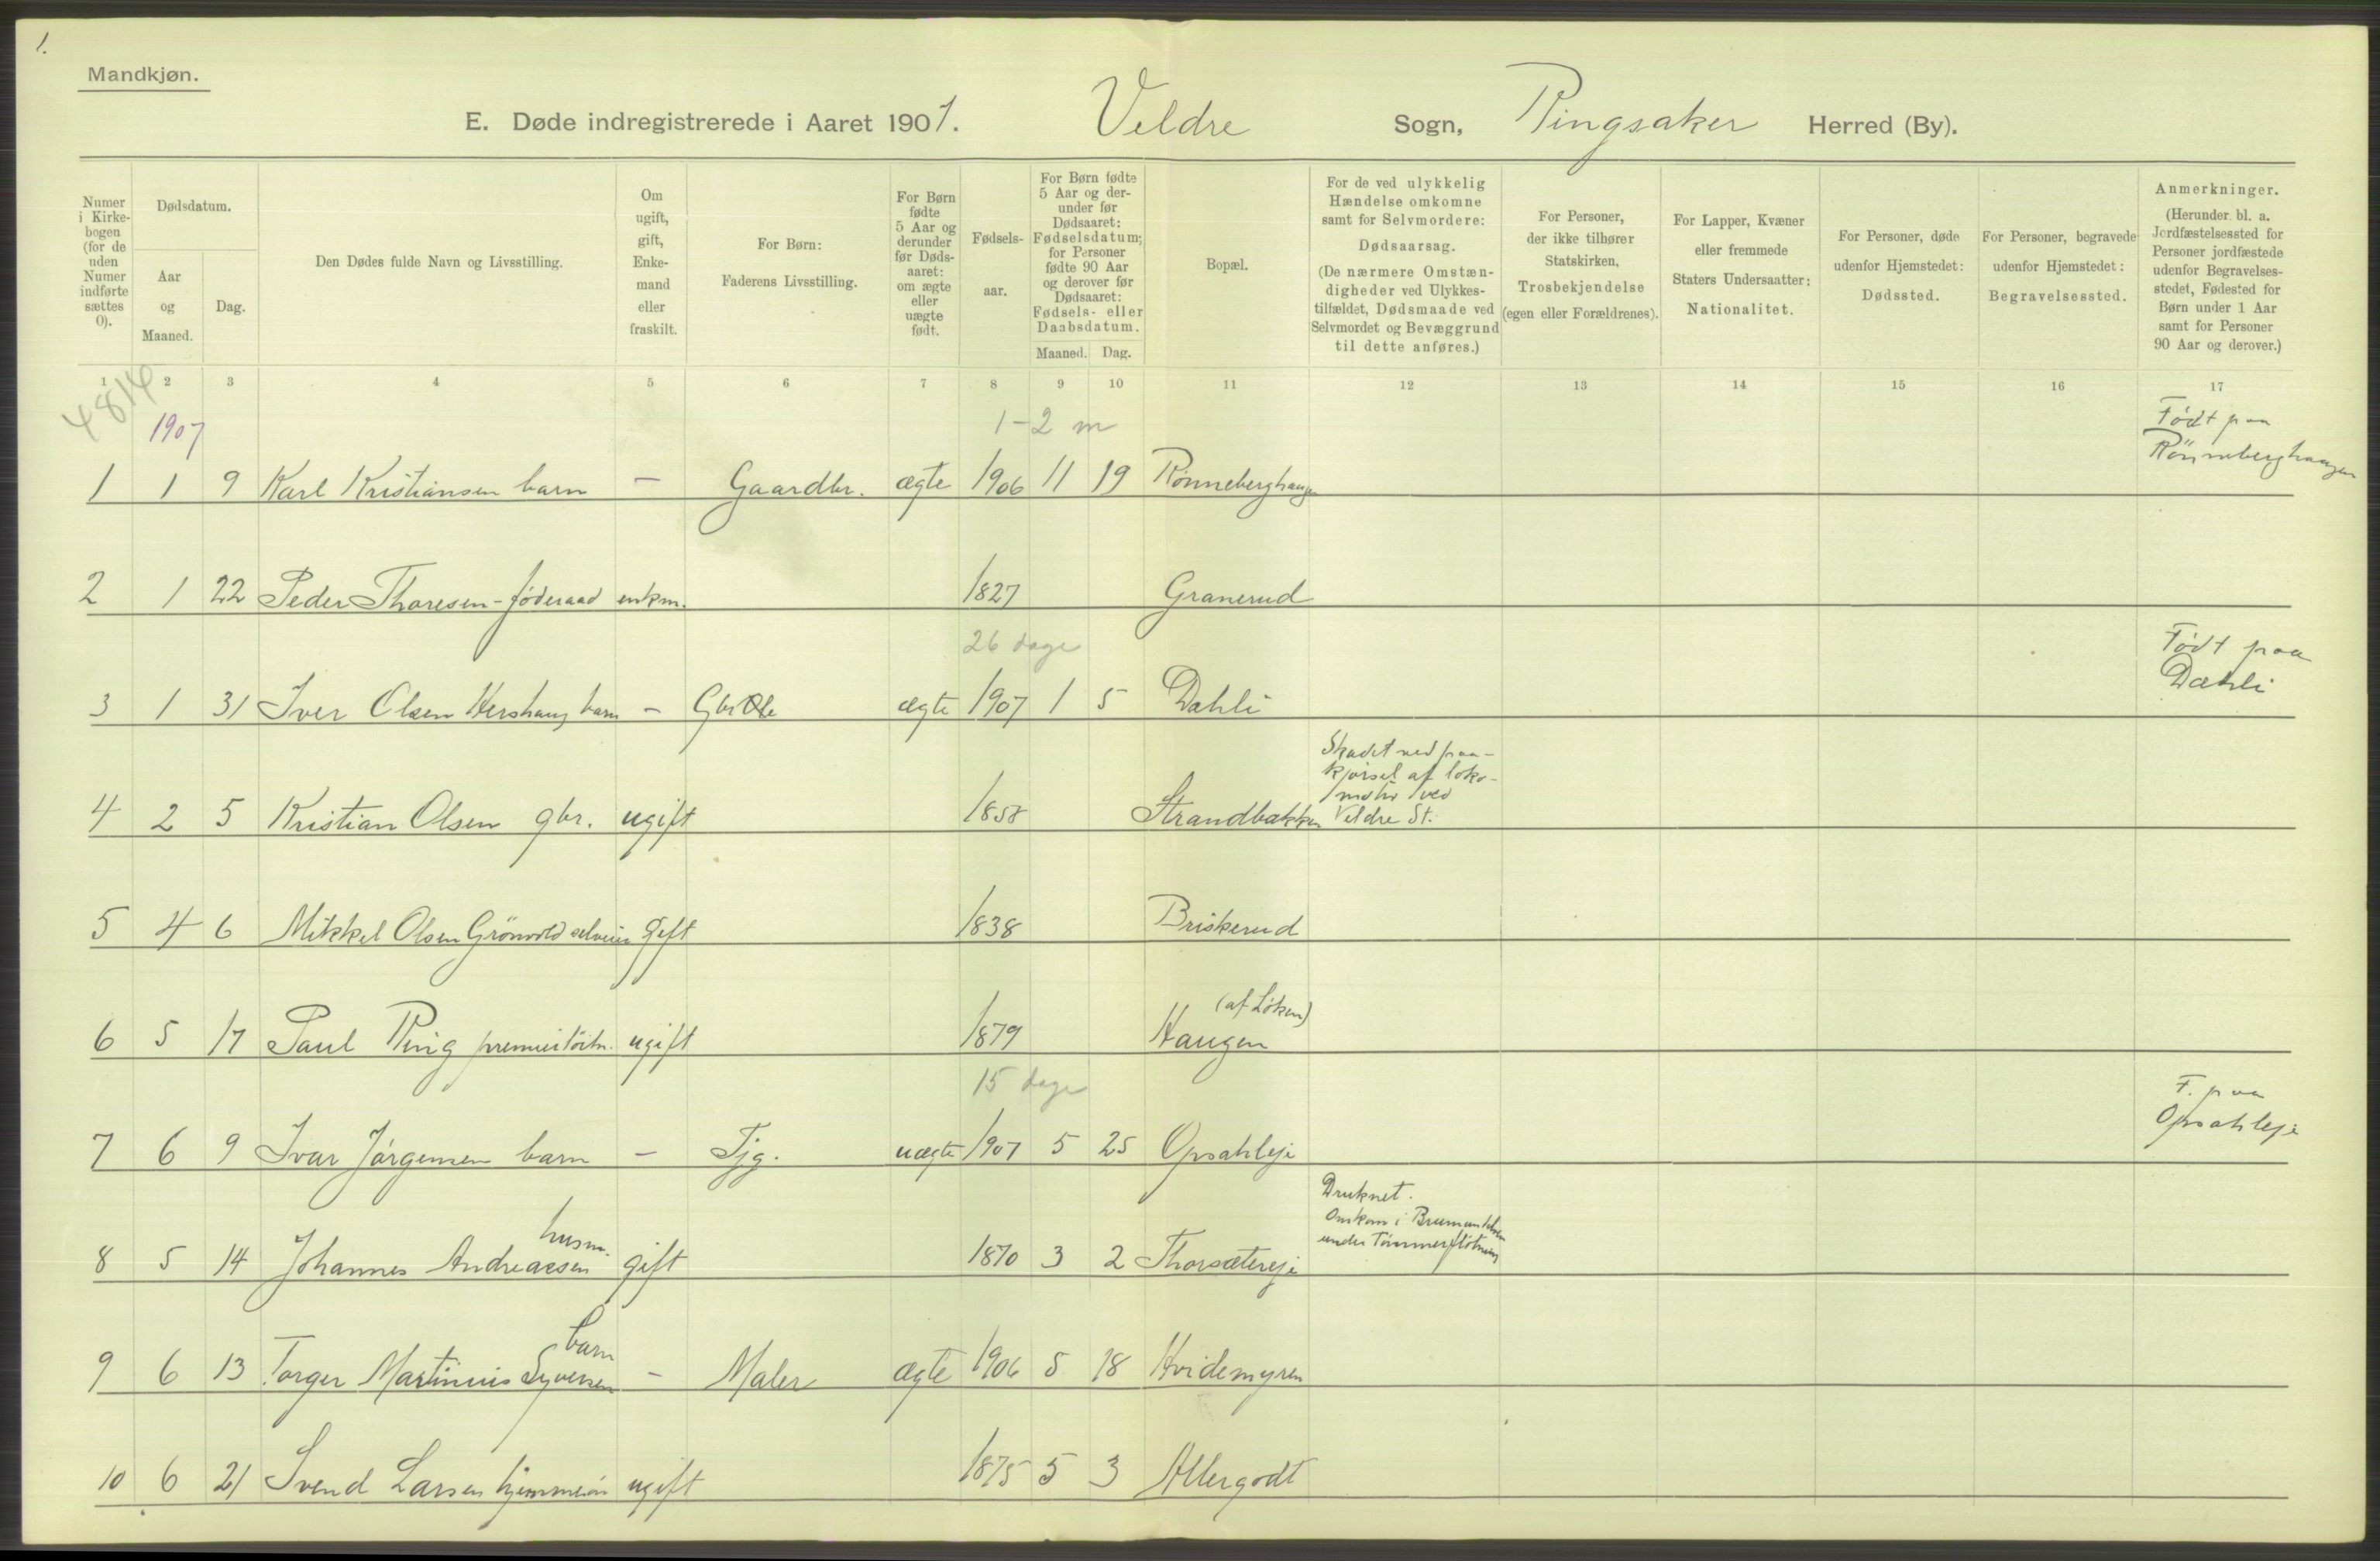 1.
Mandkjøn.
E. Døde indregistrerede i Aaret 1907. Veldre Sogn, Ringsaker Herred (By).
Numer i Kirkebogen (for de uden Numer indførte sættes 0).
Dødsdatum.
Aar og Maaned.
Dag.
Den Dødes fulde Navn og Livsstilling.
Om ugift, gift, Enkemand eller fraskilt.
For Børn: Faderens Livsstilling.
For Børn fødte 5 Aar og derunder før Dødsaaret: om ægte eller uægte født.
Fødselsaar.
For Børn fødte 5 Aar og derunder før Dødsaaret: Fødselsdatum; for Personer fødte 90 Aar og derover før Dødsaaret: Fødsels- eller Daabsdatum.
Maaned. Dag.
Bopæl.
For de ved ulykkelig Hændelse omkomne samt for Selvmordere: Dødsaarsag. (De nærmere Omstændigheder ved Ulykkestilfældet, Dødsmaade ved Selvmordet og Bevæggrund til dette anføres.)
For Personer, der ikke tilhører Statskirken, Trosbekjendelse (egen eller Forældrenes).
For Lapper, Kvæner eller fremmede Staters Undersaatter: Nationalitet.
For Personer, døde udenfor Hjemstedet: Dødssted.
For Personer, begravede udenfor Hjemstedet: Begravelsessted.
Anmerkninger. (Herunder bl. a. Jordfæstelsessted for Personer jordfæstede udenfor Begravelsesstedet, Fødested for Børn under 1 Aar samt for Personer 90 Aar og derover.)
1 2 3 4 5 6 7 8 9 10 11 12 13 14 15 16 17
4814
1907
1-2 m
Født paa
Rönneberghaugen
1 1 9 Karl Kristiansen barn — Gaardbr. ægte 1906 11 19 Rønneberghaugen
2 1 22 Peder Thoresen - föderaad enkm. 1827 Granerud
26 dage
Født paa
Dæhli
3 1 31 Iver Olsen barn — Gbr ægte 1907 1 5 Dæhli
Skadet ved paa-
kjörsel af loko-
motiv ved
4 2 5 Kristian Olsen gbr. ugift 1858 Strandbakken Veldre St.
5 4 6 Mikkel Olsen Grönvold selveier gift 1838 Briskerud
(af Löken)
6 5 17 Paul Ring premierlöitn. ugift 1879 Haugen
15 dage
F. paa
Opsahleje
7 6 9 Ivar Jörgensen barn — Tjg. uægte 1907 5 25 Opsahleje
Druknet.
Omkom i
under Tömmerflötning
husm.
8 5 14 Johannes Andreassen gift 1870 3 2 Thorsætereje
barn
9 6 13 Torger Martinius Syversen — Maler ægte 1906 5 18 Hvidemyren
10 6 21 Svend Larsen ugift 1875 5 3 Allergodt